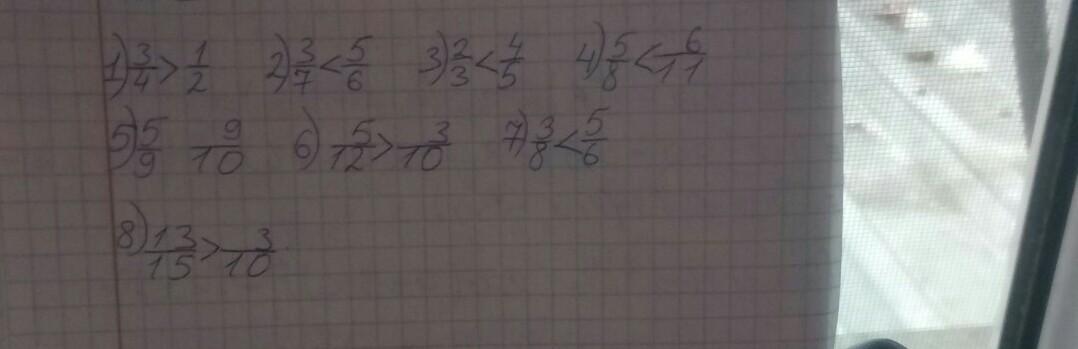 1) 3/4 > 1/2 2) 3/7 < 5/6 3) 2/3 < 4/5 4) 5/8 < 6/11
5) 5/9 9/10 6) 5/12 > 3/10 7) 3/8 < 5/6
8) 13/15 > 3/10